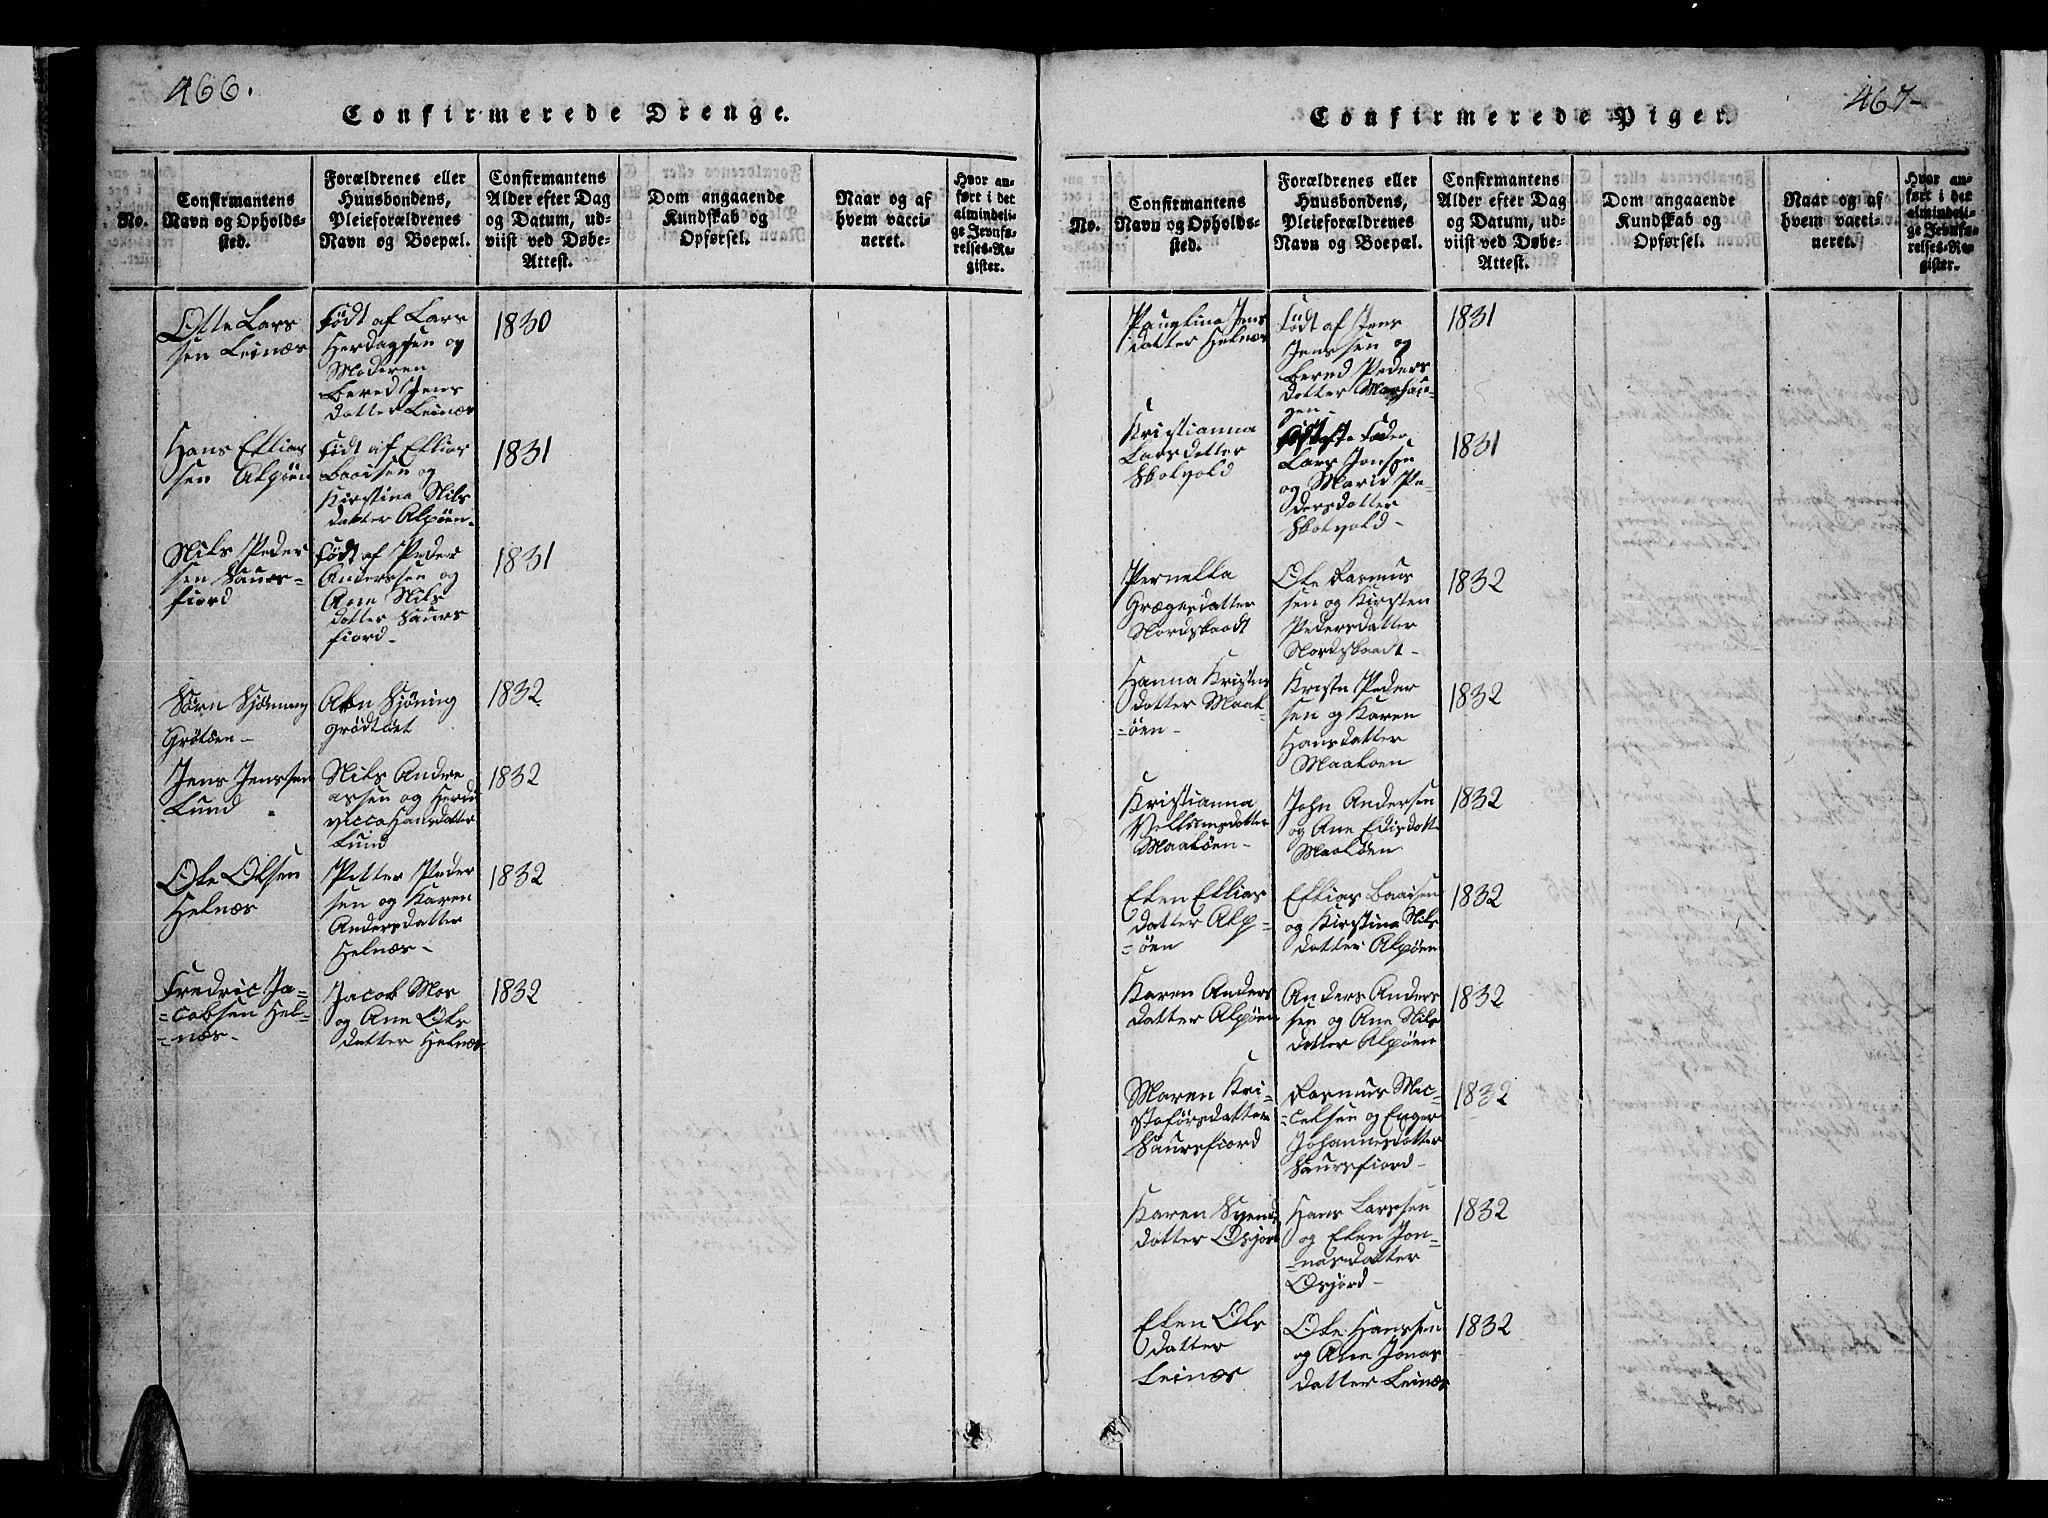 466.
Confirmerede Drenge.
No.
Confirmantens
Navn og Opholds-
sted.
Forældrenes eller
Huusbondens,
Pleieforældrenes
Navn og Boepæl.
Confirmantens
Alder efter Dag
og Datum, ud-
viist ved Døbe-
Attest.
Dom angaaende
Kundskab og
Opførsel.
Naar og af
hvem vacci-
neret.
Hvor an-
ført i det
almindeli-
ge Jevnfø-
relses-Re-
gister.
Otte Lars
sen Leinæs
Født af Lars
Herdagsen og
Moderen
Bered Jens
datter Leinæs
1830
Hans Ellias
sen Alpøen
Født af Ellias
Baaisen og
Kirstina Nils
datter Alpøen-
1831
Nils Peder
sen Saurs-
fiord
Født af Peder
Anderssen og
Ane Nils
datter Saurs
fiord-
1831
Sørn Sjøning
Grøtøen-
Sjøning
Grødtøet
1832
Jens Jenssen
Lund
Nils Andre
assen og
Hansdatter
Lund
1832
Ole Olsen
Helnæs
Petter Peder
sen og Karen
Andersdatter
Helnæs-
1832
Fredric Ja-
=cobsen Hel-
=næs-
Jacob Mos
og Ane Ols
datter Helnæs
1832
467-
Confirmerede Piger.
No.
Confirmantens
Navn og Opholds-
sted.
Forældrenes eller
Huusbondens,
Pleieforældrenes
Navn og Boepæl.
Confirmantens
Alder efter Dag
og Datum, ud-
viist ved Døbe-
Attest.
Dom angaaende
Kundskab og
Opførsel.
Naar og af
hvem vacci-
neret.
Hvor an-
ført i det
almindeli-
ge Jevnfø-
relses-Re-
gister.
Paulina Jens
datter Helnæs
Født af Jens
Jenssen og
Bered Peders
datter Marhau-
gen-
1831
Kristianna
Larsdatter
Skolvold
Lars Jonsen
og Marid Pe-
dersdatter
Skolvold-
1831
Pernella
Grægersdatter
Nordskaadt
Ole Rasmus
sen og Kirsten
Pedersdatter
Nordskaadt-
1832
Hanna Kristens
datter Maak-
=øen-
Kristen Peder
sen og Karen
Hansdatter
Maakøen
1832
Kristianna
Vellumsdatter
Maakøen-
John Andersen
og Ane Edisdatt
Maakøen
1832
Elen Ellias
datter Alp-
=øen
Ellias Baaisen
og Kirstina Nils
datter Alpøen
1832
Karen Anders
datter Alpøen
Anders Anders
sen og Ane Nils
datter Alpøen
1832
Maren Kri-
stoførsdatter
Saursfiord
Rasmus Mic-
=celsen og Enger
Johannesdatter
Saursfiord-
1832
Karen Svends
datter Osjord
Hans Larssen
og Elen Jon-
=nasdatter
Osjord-
1832
Elen Ols
datter
Leinæs
Ole Hanssen
og Ane Jonas
datter Leinæs
1832